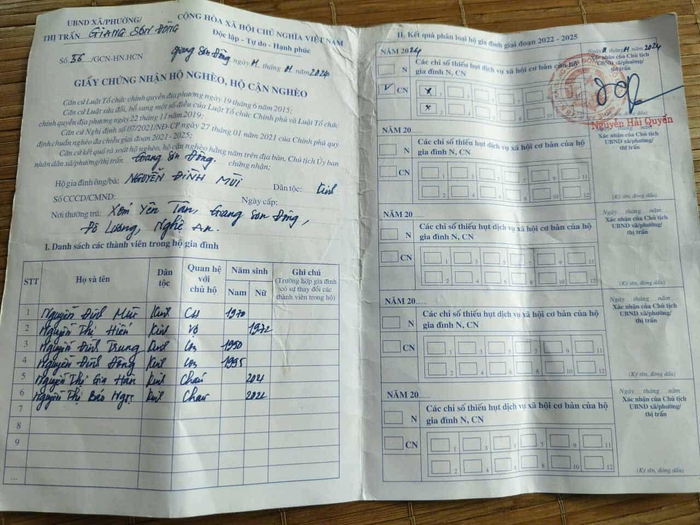 UBND XÃ/PHƯỜNG/
THỊ TRẤN GIANG SƠN ĐÔNG
CỘNG HÒA XÃ HỘI CHỦ NGHĨA VIỆT NAM
Độc lập - Tự do - Hạnh phúc
Số: 56 /GCN-HN.HCN
Giang Sơn Đông, ngày 11 tháng 11 năm 2024
GIẤY CHỨNG NHẬN HỘ NGHÈO, HỘ CẬN NGHÈO
Căn cứ Luật Tổ chức chính quyền địa phương ngày 19 tháng 6 năm 2015;
Căn cứ Luật sửa đổi, bổ sung một số điều của Luật Tổ chức Chính phủ và Luật Tổ chức
chính quyền địa phương ngày 22 tháng 11 năm 2019;
Căn cứ Nghị định số 07/2021/NĐ-CP ngày 27 tháng 01 năm 2021 của Chính phủ quy
định chuẩn nghèo đa chiều giai đoạn 2021 - 2025;
Căn cứ kết quả rà soát hộ nghèo, hộ cận nghèo hằng năm trên địa bàn, Chủ tịch Ủy ban
nhân dân xã/phường/thị trấn. Giang Sơn Đông. chứng nhận:
Hộ gia đình ông/bà: NGUYỄN ĐÌNH MÙI Dân tộc: Kinh
Số CCCD/CMND: Ngày cấp:
Nơi thường trú: Xóm Yên Tân, Giang Sơn Đông,
Đô Lương, Nghệ An.
I. Danh sách các thành viên trong hộ gia đình
STT Họ và tên Dân tộc Quan hệ với chủ hộ Năm sinh Nam Nữ Ghi chú (Trường hợp gia đình có sự thay đổi các thành viên trong hộ)
1 Nguyễn Đình Mùi Kinh 1970
2 Nguyễn Thị Hiền Kinh Vợ 1972
3 Nguyễn Đình Trung Kinh Con
4 Nguyễn Đình Đông Kinh Con 1995
5 Nguyễn Thị Gia Hân Kinh Cháu
6 Nguyễn Thị Bảo Ngọc Kinh Cháu
7
8
9
...
II. Kết quả phân loại hộ gia đình giai đoạn 2022 - 2025
NĂM 2024
N
V CN
Các chỉ số thiếu hụt dịch vụ xã hội cơ bản của hộ
gia đình N, CN
x
x
Ngày 11 tháng 11 năm 2024
Xác nhận của Chủ tịch
UBND xã/phường/
thị trấn
Nguyễn Hải Quyền
NĂM 20
N
CN
Các chỉ số thiếu hụt dịch vụ xã hội cơ bản của hộ
gia đình N, CN
1 3 5 7 9 11
2 4 6 8 10 12
Xác nhận của Chủ tịch
UBND xã/phường/
thị trấn
(Ký tên, đóng dấu)
NĂM 20
N
CN
Các chỉ số thiếu hụt dịch vụ xã hội cơ bản của hộ
gia đình N, CN
1 3 5 7 9 11
2 4 6 8 10 12
Ngày tháng năm
Xác nhận của Chủ tịch
UBND xã/phường/
thị trấn
(Ký tên, đóng dấu)
NĂM 20
N
CN
Các chỉ số thiếu hụt dịch vụ xã hội cơ bản của hộ
gia đình N, CN
1 3 5 7 9 11
2 4 6 8 10 12
Ngày tháng năm
Xác nhận của Chủ tịch
UBND xã/phường/
thị trấn
(Ký tên, đóng dấu)
NĂM 20
N
CN
Các chỉ số thiếu hụt dịch vụ xã hội cơ bản của hộ
gia đình N, CN
1 3 5 7 9 11
2 4 6 8 10 12
Ngày tháng năm
Xác nhận của Chủ tịch
UBND xã/phường/
thị trấn
(Ký tên, đóng dấu)